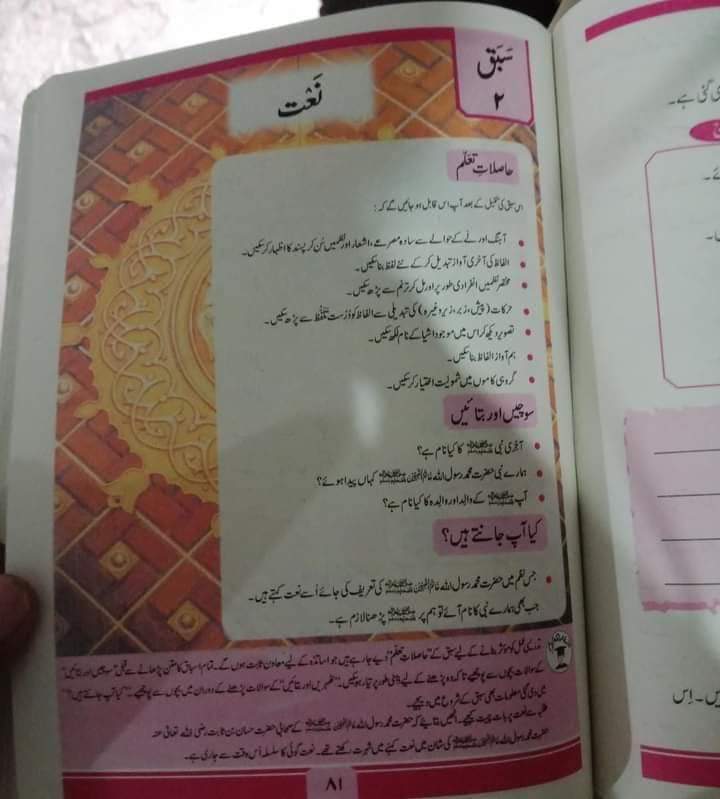 سَبَق
۲
نَعْت
حاصلاتِ تعلّم
اس سبق کی تکمیل کے بعد آپ اس قابل ہو جائیں گے کہ:
آہنگ اور لے کے حوالے سے سادہ مصرعے، اشعار اور نظمیں سُن کر پسند کا اظہار کر سکیں۔
الفاظ کی آخری آواز تبدیل کر کے نئے لفظ بنا سکیں۔
مختصر نظمیں انفرادی طور پر اور مل کر ترنم سے پڑھ سکیں۔
حرکات (پیش، زبر، زیر وغیرہ) کی تبدیلی سے الفاظ کو دُرست تلفّظ سے پڑھ سکیں۔
تصویر دیکھ کر اس میں موجود اشیا کے نام لکھ سکیں۔
ہم آواز الفاظ بنا سکیں۔
گروہی کاموں میں شمولیت اختیار کر سکیں۔
سوچیں اور بتائیں
آخری نبی ﷺ کا کیا نام ہے؟
ہمارے نبی حضرت محمد رسول اللہ خاتم النبیین ﷺ کہاں پیدا ہوئے؟
آپ ﷺ کے والد اور والدہ کا کیا نام ہے؟
کیا آپ جانتے ہیں؟
جس نظم میں حضرت محمد رسول اللہ خاتم النبیین ﷺ کی تعریف کی جائے اُسے نعت کہتے ہیں۔
جب بھی ہمارے نبی کا نام آئے تو ہم پر ﷺ پڑھنا لازم ہے۔
تدریسی عمل کو مؤثر بنانے کے لیے سبق کے "حاصلاتِ تعلم" دیے جا رہے ہیں جو اساتذہ کے لیے معاون ثابت ہوں گے۔ تمام اسباق کا متن پڑھانے سے قبل "سوچیں اور بتائیں"
کے سوالات بچوں سے پوچھیے تاکہ وہ پڑھنے کے لیے ذہنی طور پر تیار ہو سکیں۔ "ٹھہریں اور بتائیں" کے سوالات پڑھنے کے دوران میں بچوں سے پوچھیے۔ "کیا آپ جانتے ہیں؟"
میں دی گئی معلومات بھی سبق کے شروع میں دیجیے۔
طلبہ سے نعت پر بات چیت کیجیے۔ انھیں بتائیے کہ حضرت محمد رسول اللہ خاتم النبیین ﷺ کے صحابی حضرت حسان بن ثابت رضی اللہ تعالیٰ عنہ
حضرت محمد رسول اللہ خاتم النبیین ﷺ کی شان میں نعت کہنے میں شہرت رکھتے تھے۔ نعت گوئی کا سلسلہ اُس وقت سے جاری ہے۔
۸۱
گئی ہے۔
یں۔ اِس